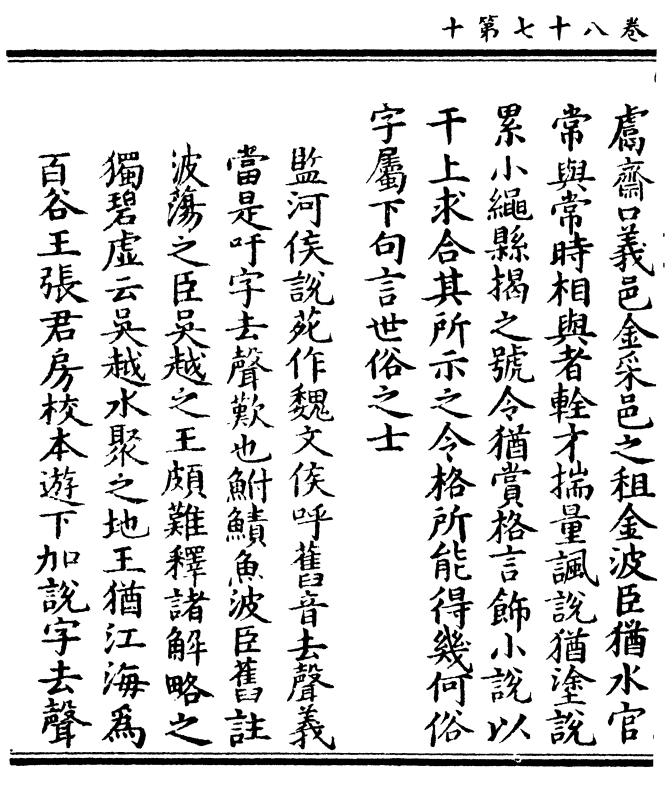 卷八十七第十
鬳齋口義邑金采邑之租金波臣猶水官
常與常時相與者輇才揣量諷說猶塗說
累小繩縣揭之號令猶賞格言飾小說以
干上求合其所示之令格所能得幾何俗
字屬下句言世俗之士
監河侯說苑作魏文侯呼舊音去聲義
當是吁字去聲歎也鮒鰿魚波臣舊註
波蕩之臣吳越之王頗難釋諸解略之
獨碧虛云吳越水聚之地王猶江海爲
百谷王張君房校本遊下加說字去聲